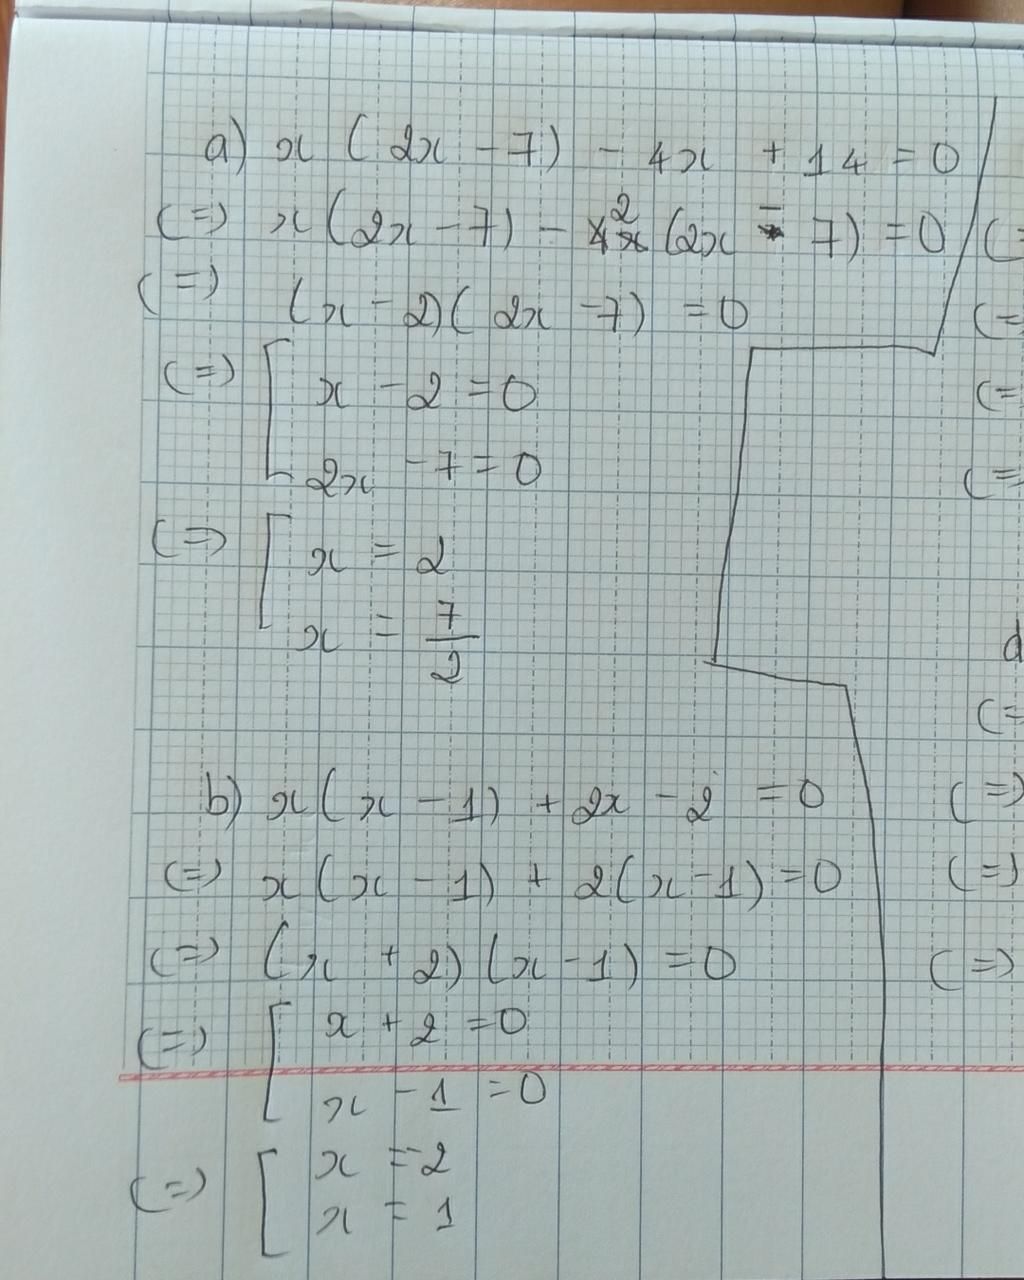 a) x (2x - 7) - 4x + 14 = 0
(=) x(2x - 7) - 2 (2x - 7) = 0
(=) (x - 2)( 2x - 7) = 0
(=) [ x - 2 = 0
2x - 7 = 0
(=) [ x = 2
x = 7/2
b) x(x - 1) + 2x - 2 = 0
(=) x(x - 1) + 2(x - 1) = 0
(=) (x + 2)(x - 1) = 0
(=) [ x + 2 = 0
x - 1 = 0
(=) [ x = -2
x = 1
(=
(=)
(=
(=
d
(=
(=)
(=)
(=)